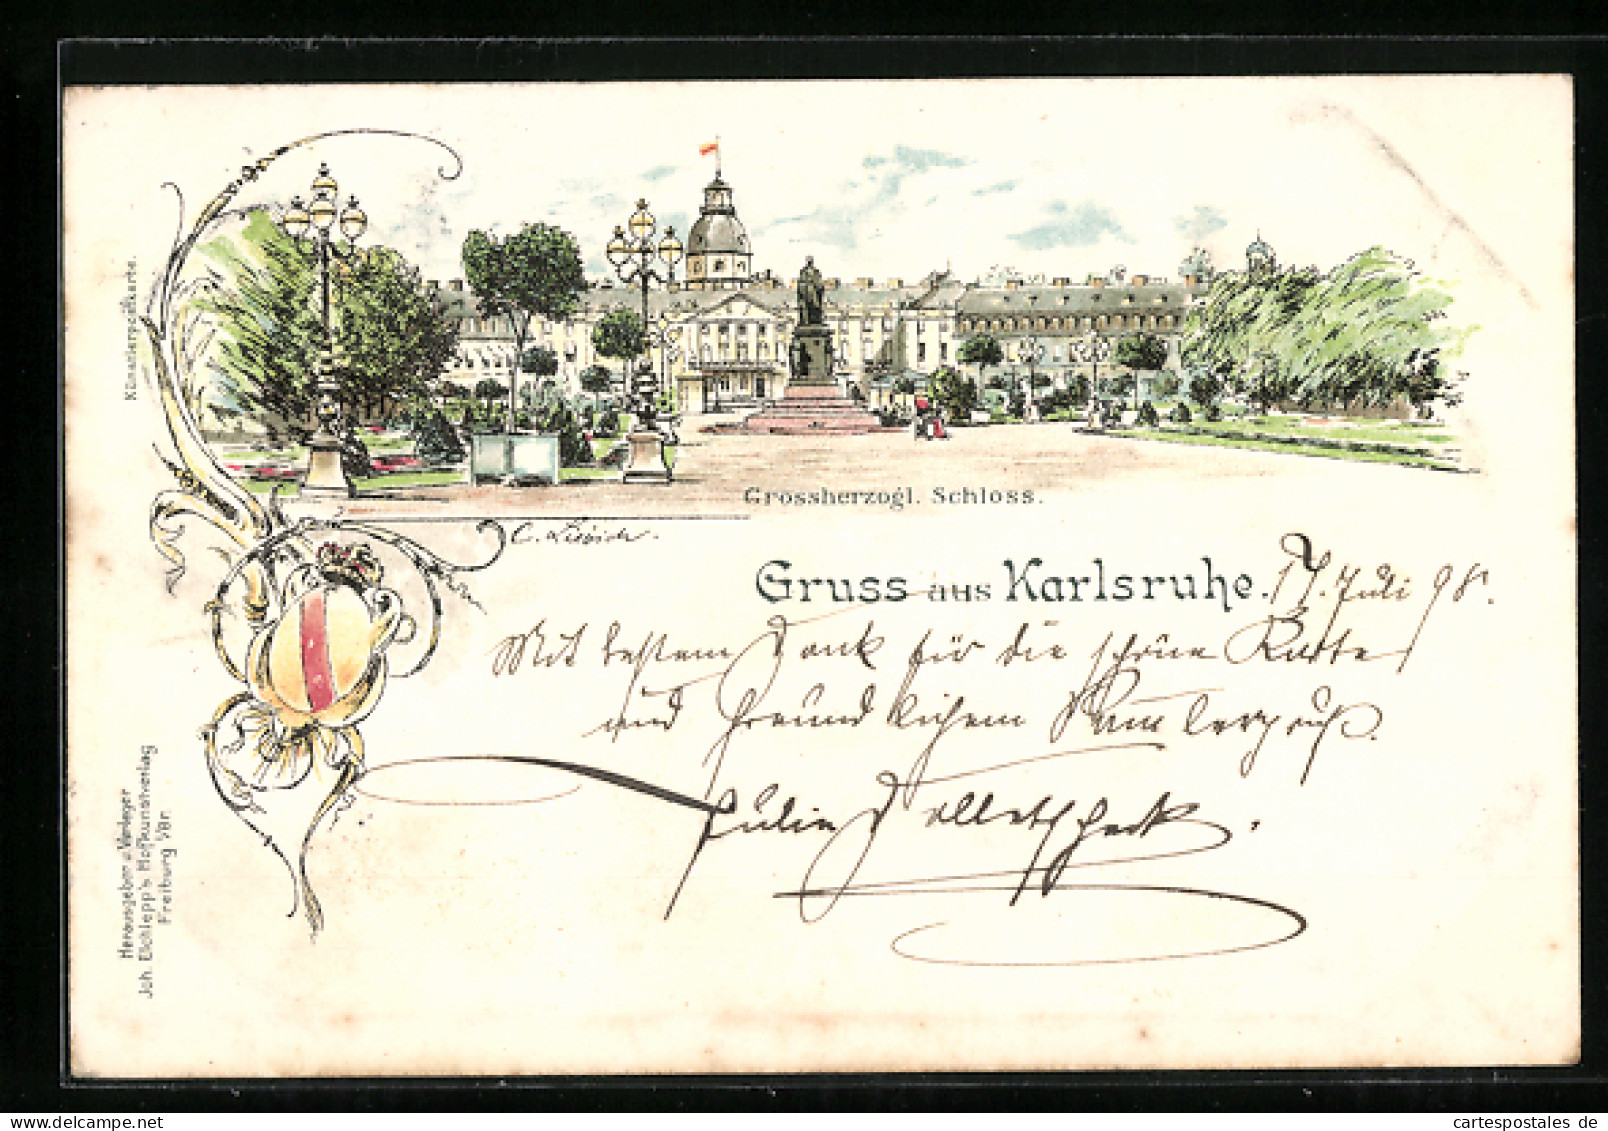 Künstlerpostkarte.
Grossherzogl. Schloss.
Gruss aus Karlsruhe.
17. Juli 98.
Mit bestem Dank für die schöne Karte
und freundlichem Sammlergruß.
Julie
Herausgeber u. Verleger
Joh. Elchlepp's Hofkunstverlag
Freiburg i/Br.
cartespostales de